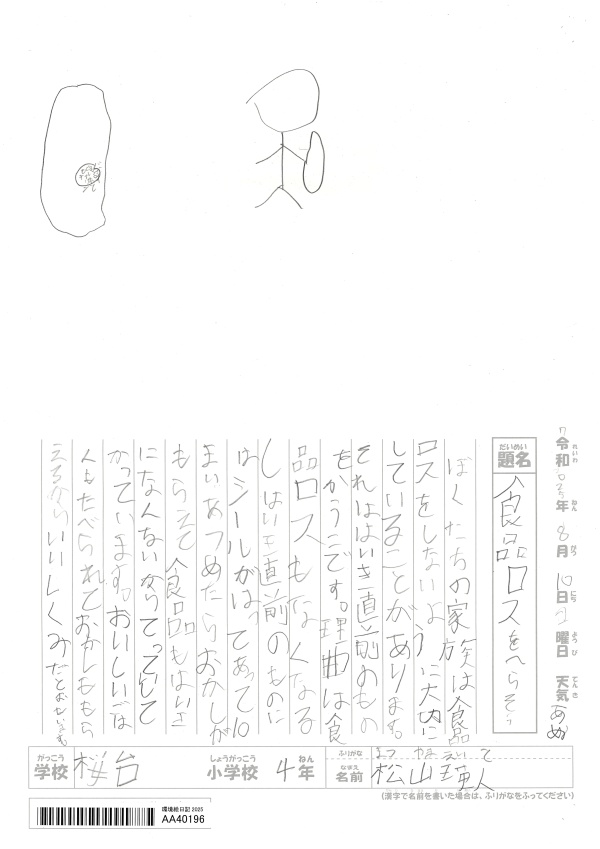 7
令和 025年 8月 10日 曜日 天気 あめ
れいわ ねん がつ にち ようび てんき
だいめい
題名 食品ロスをへらそう
ぼくたちの家族は食品
ロスをしないように大切に
していることがあります。
それははいき直前のもの
をかうことです。理由は食
品ロスもなくなる
しはいき直前のものに
はシールがはってあって10
まいあつめたらおかしが
もらえて食品もはいき
になんないからてつだって
かっています。おいしいごは
んもたべられておかしももら
えるからいいしくみだとおもいます。
がっこう
学校 桜台 小学校 4年
しょうがっこう ねん
ふりがな まつ やま えい と
なまえ
名前 松山瑛人
(漢字で名前を書いた場合は、ふりがなをふってください)
環境絵日記 2025
AA40196